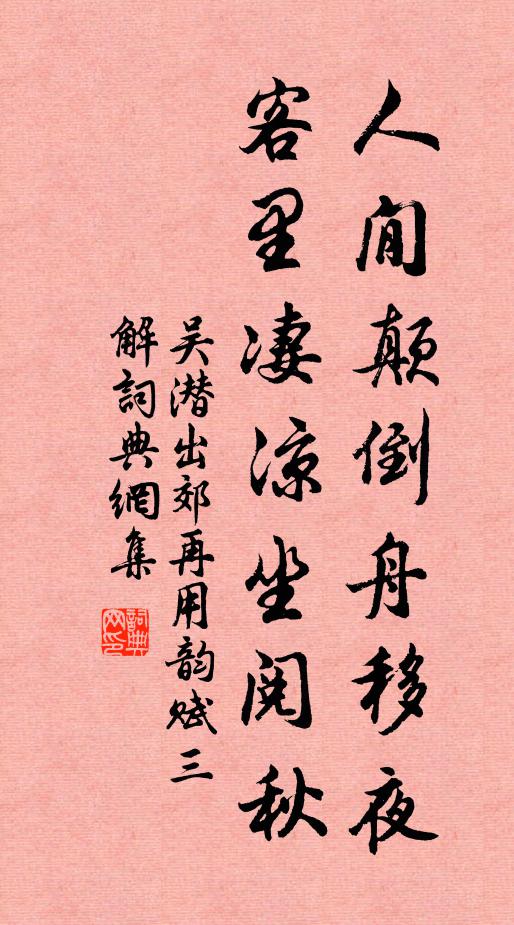 人閒顛倒舟移夜
客里凄凉坐閱秋
吴潜出郊再用韵赋三
解詞典網集
詞典网印